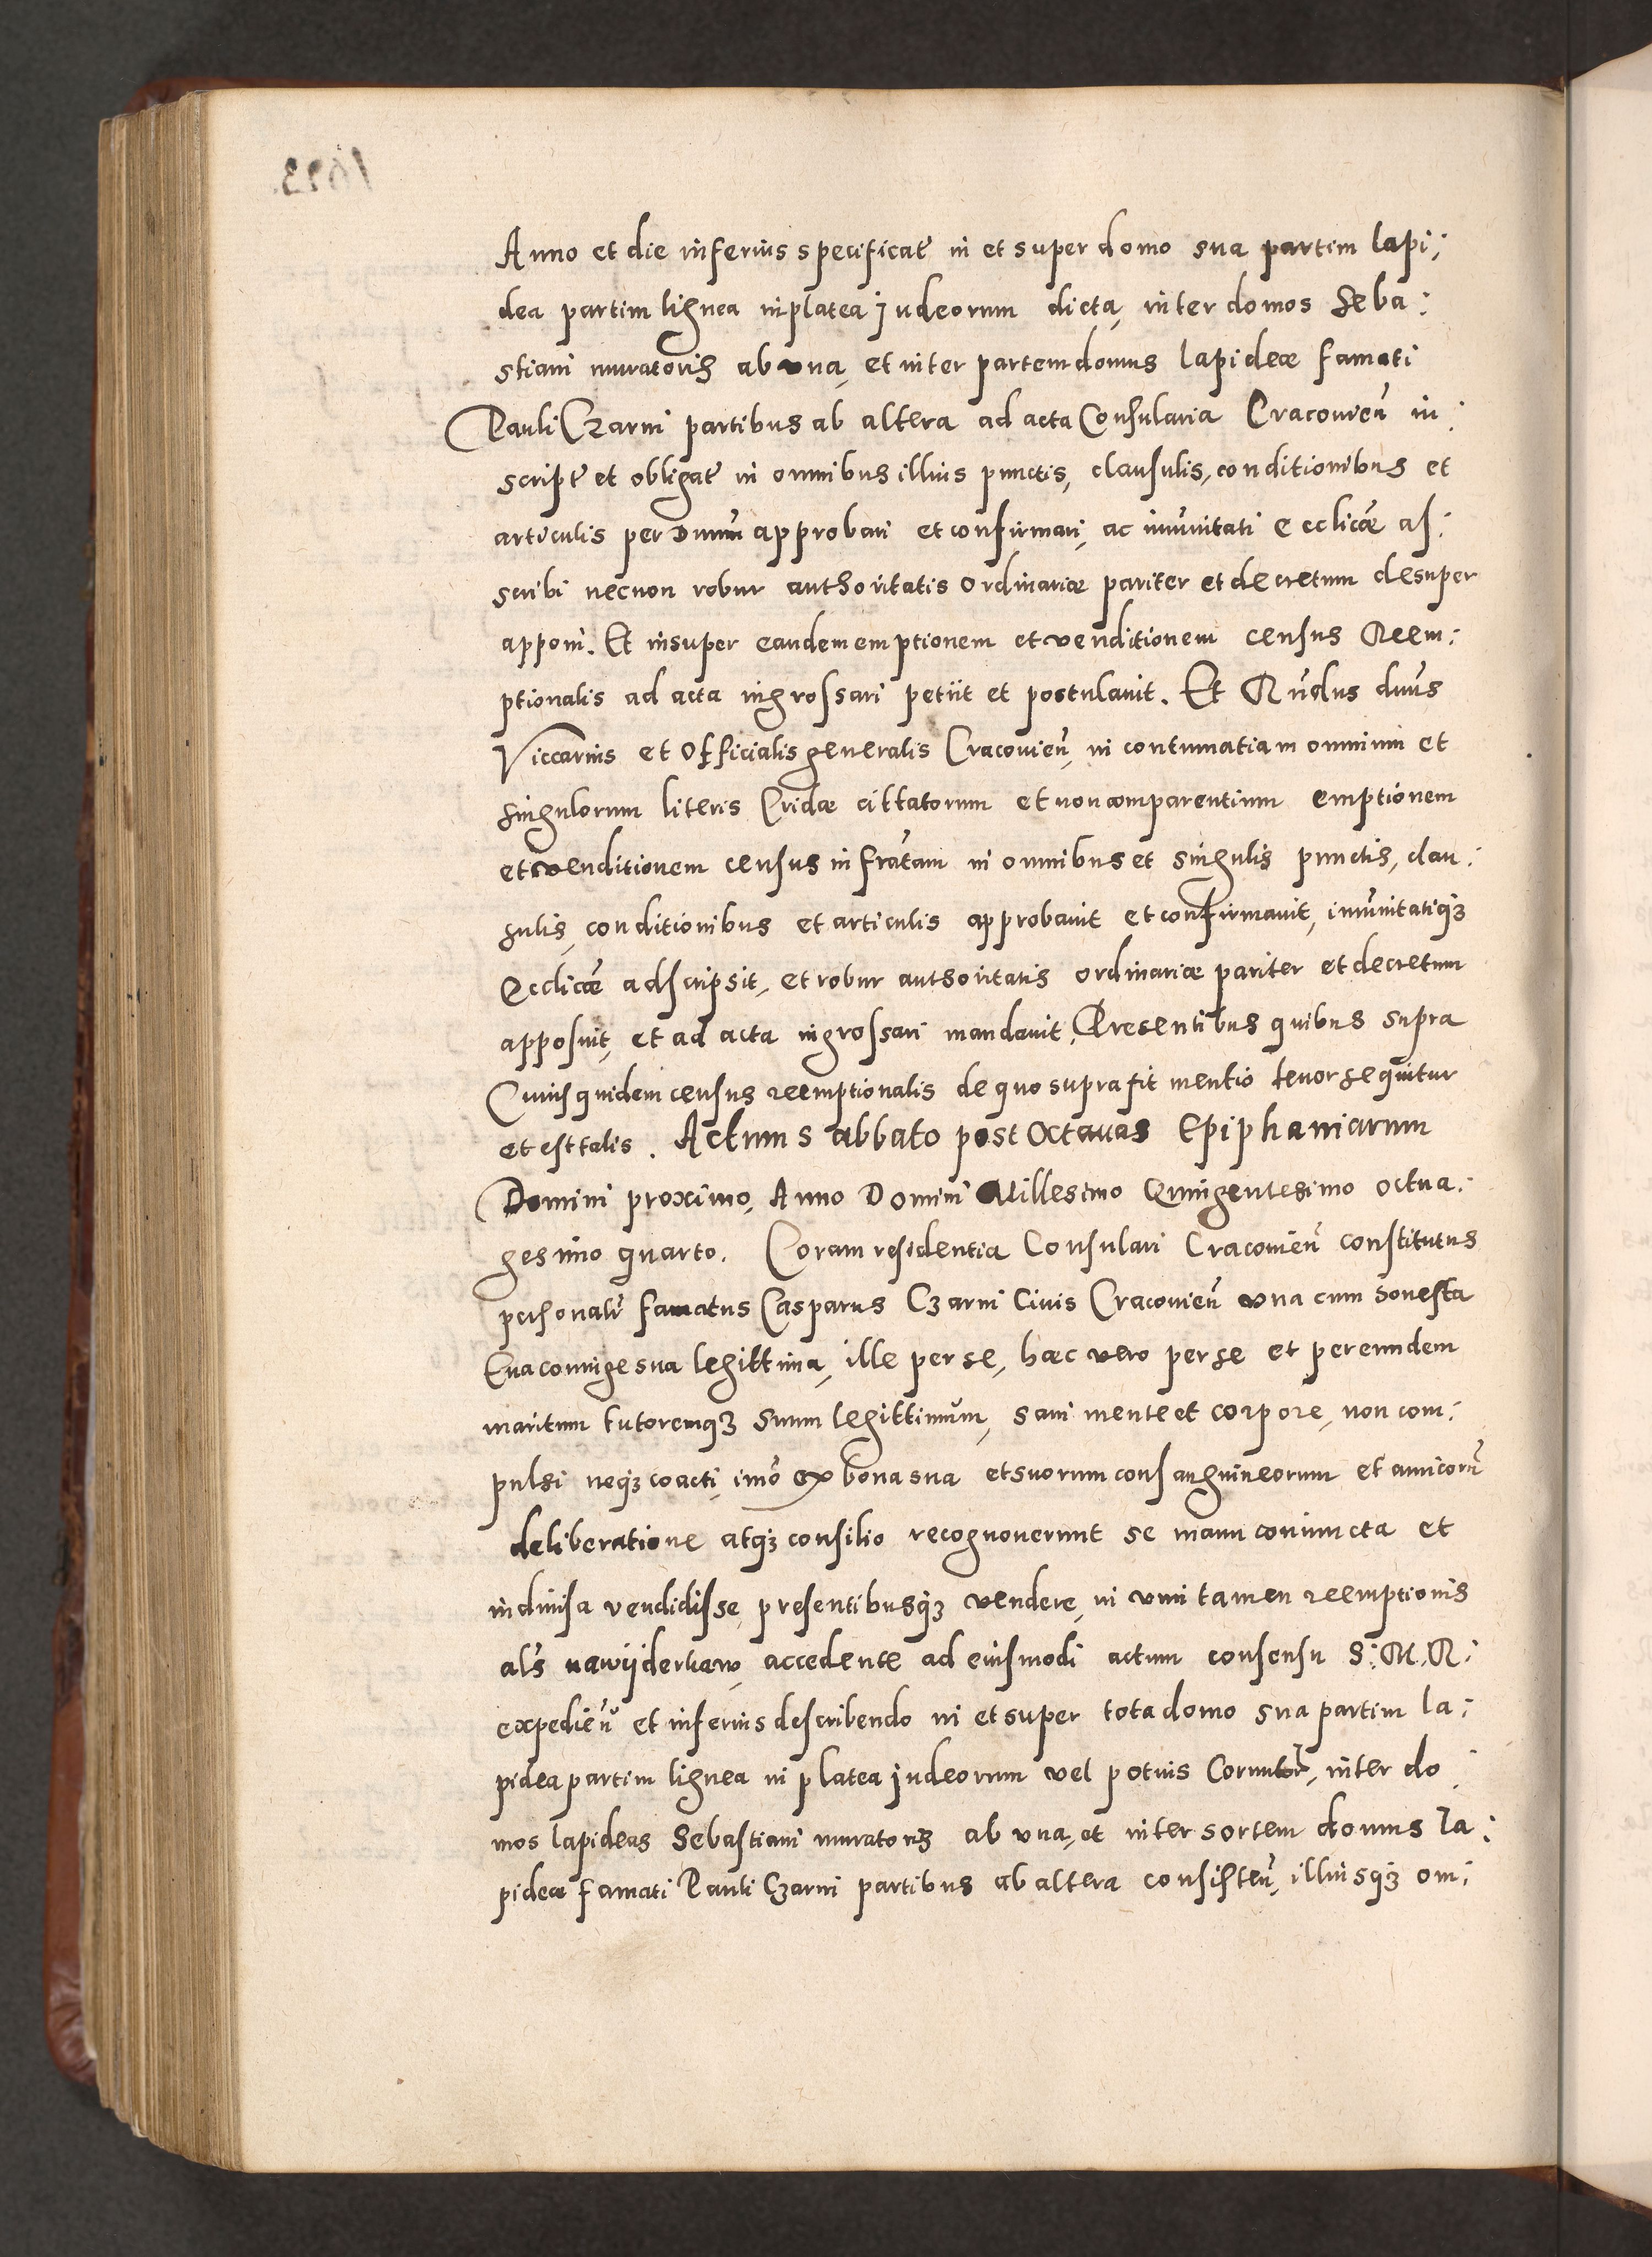 Anno et die inferius specificat̃ in et super domo sua partim lapi:
dea partim lignea in platea judeorum dicta, inter domos Seba:
stiani muratoris ab una, et inter partem domus lapideæ famati
Pauli Czarni partibus ab altera ad acta Consularia Cracovieñ in:
script̃ et obligat̃ in omnibus illius punctis, clausulis, conditionibus et
articulis per Dnum approbari et confirmari, ac im̃unitati ecclicæ as:
scribi necnon robur authoritatis ordinariæ pariter et decretum desuper
apponi. Et insuper eandem emptionem et venditionem census Reem:
ptionalis ad acta ingrossari petiit et postulavit. Et Rñdus dnus
Viccarius et Officialis generalis Cracovieñ, in contumatiam omnium et
singulorum literis Cridæ cittatorum et non comparentium emptionem
et venditionem census infratam in omnibus et singulis punctis, clau:
sulis, conditionibus et articulis approbavit et confirmavit, im̃unitatiqȝ
Ecclicæ adscripsit, et robur authoritatis ordinariæ pariter et decretum
apposuit, et ad acta ingrossari mandavit, Presentibus quibus supra
Cuius quidem census reemptionalis de quo supra fit mentio tenor sequitur
et est talis. Actum sabbato post Octavas Epiphaniarum
Domini proximo, Anno Domini Millesimo Quingentesimo octua:
gesimo quarto. Coram residentia Consulari Cracovieñ constitutus
personalr̃ famatus Casparus Czarni Civis Cracovieñ una cum honesta
Eva coniuge sua legittima, ille per se, hæc vero per se et per eundem
maritum tutoremqȝ suum legittimum, sani mente et corpore, non com:
pulsi neqȝ coacti, imo ex bona sua et suorum consanguineorum et amicorũ
deliberatione atqȝ consilio recognoverunt se manu coniuncta et
indivisa vendidisse presentibusqȝ vendere, in vim tamen reemptionis
als̃ nawijderkaw, accedente ad eiusmodi actum consensu S: M. R:
expedieñ et inferius describendo in et super tota domo sua partim la:
pidea partim lignea in platea judeorum vel potius Cornutor̃, inter do:
mos lapideas Sebastiani muratoris ab una, et inter sortem domus la:
pideæ famati Pauli Czarni partibus ab altera consisteñ, illiusqȝ om: